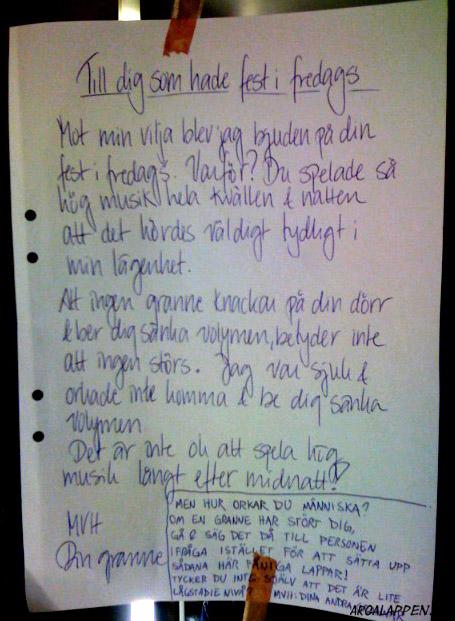 Till dig som hade fest i fredags
Mot min vilja blev jag bjuden på din
fest i fredags. Varför? Du spelade så
hög musik hela kvällen & natten
att det hördes väldigt tydligt i
min lägenhet.
Att ingen granne knackar på din dörr
& ber dig sänka volymen, betyder inte
att ingen störs. Jag var sjuk &
orkade inte komma & be dig sänka
volymen
Det är inte ok att spela hög
musik långt efter midnatt!
MVH
Din granne
MEN HUR ORKAR DU MÄNNISKA?
OM EN GRANNE HAR STÖRT DIG,
GÅ & SÄG DET DÅ TILL PERSONEN
IFRÅGA ISTÄLLET FÖR ATT SÄTTA UPP
SÅDANA HÄR FÅNIGA LAPPAR!
TYCKER DU INTE SJÄLV ATT DET ÄR LITE
LÅGSTADIE NIVÅ? MVH: DINA ANDRA
ARGALAPPEN